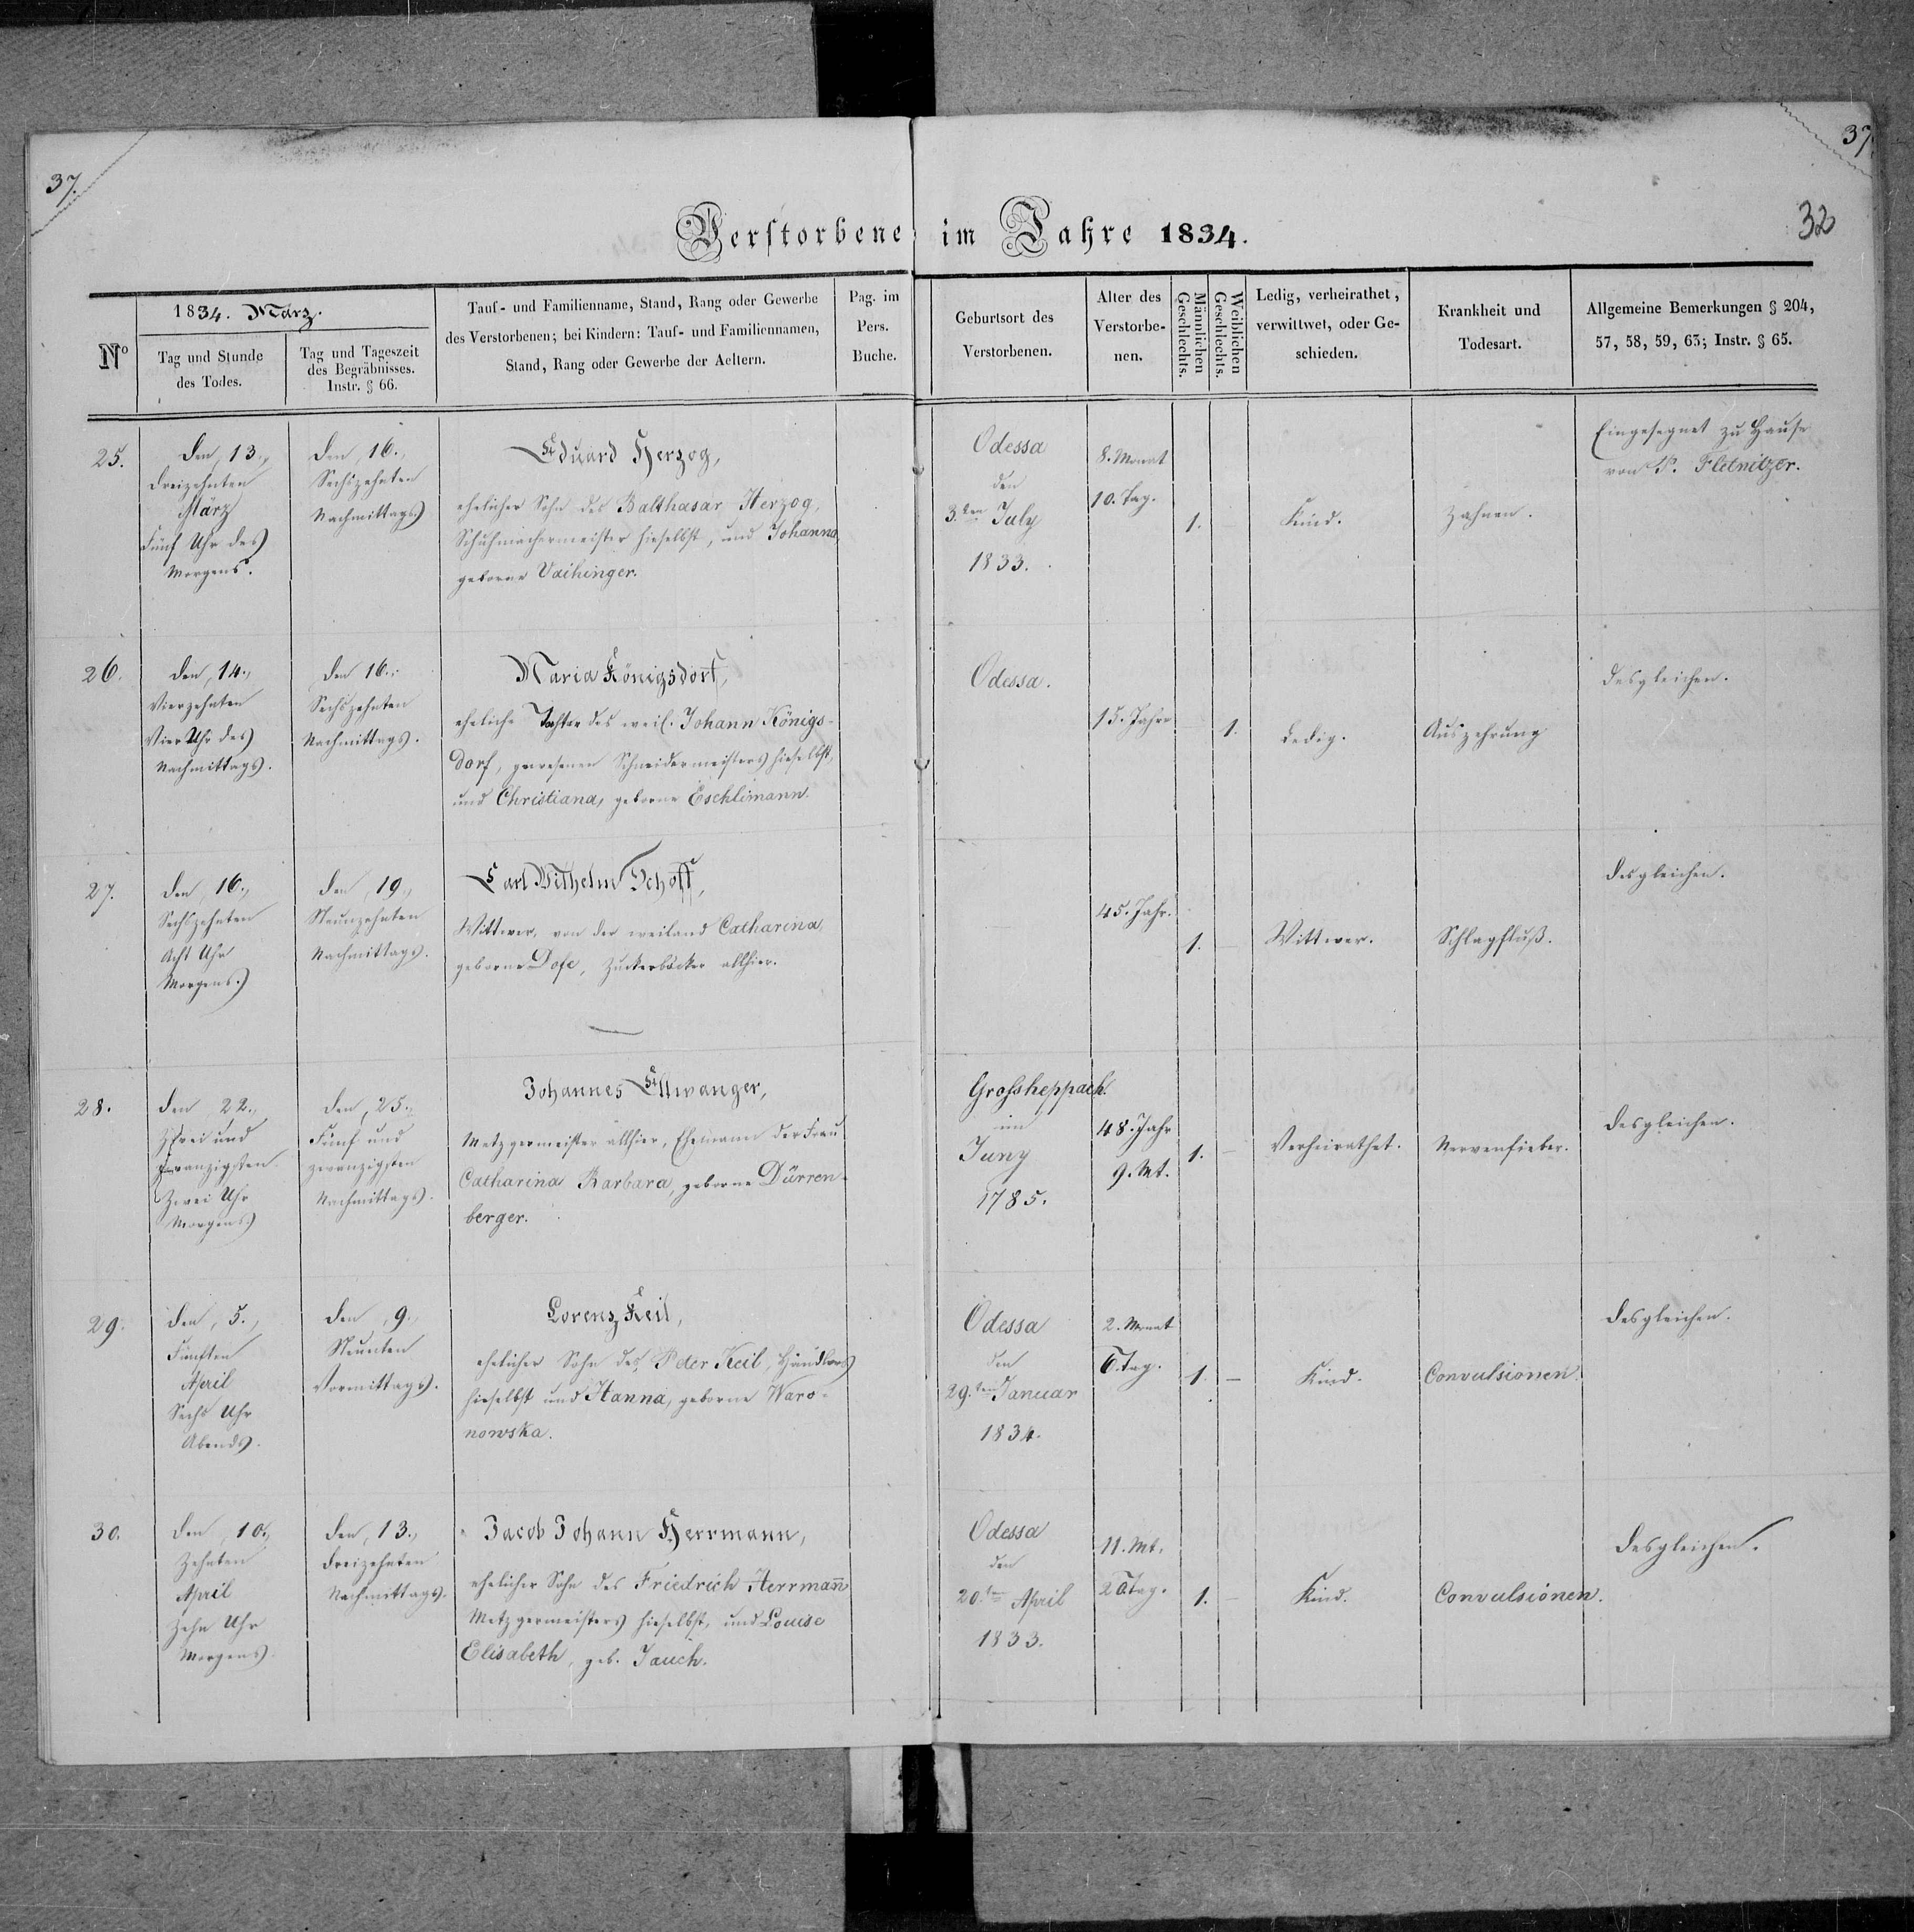 37.
37.
32
Verstorbene im Jahre 1834.
No
1834. März.
Tag und Stunde
des Todes.
Tag und Tageszeit
des Begräbnisses.
Instr. § 66.
Tauf- und Familienname, Stand, Rang oder Gewerbe
des Verstorbenen; bei Kindern: Tauf- und Familiennamen,
Stand, Rang oder Gewerbe der Aeltern.
Pag. im
Pers.
Buche.
Geburtsort des
Verstorbenen.
Alter des
Verstorbe-
nen.
Männlichen
Geschlechts.
Weiblichen
Geschlechts.
Ledig, verheirathet,
verwittwet, oder Ge-
schieden.
Krankheit und
Todesart.
Allgemeine Bemerkungen § 204,
57, 58, 59, 63; Instr. § 65.
25.
Den, 13.,
Dreizehnten
März
Fünf Uhr des
Morgens.
Den, 16.,
Sechszehnten
Nachmittags
Eduard Herzog,
ehelicher Sohn des Balthasar Herzog,
Schuhmachermeister hieselbst, und Johanna,
geborne Vaihinger.
Odessa
den
3.ten July
1833.
8. Monat
10. Tag.
1.
Kind.
Zahnen.
Eingesegnet zu Hause
von P. Fletnitzer.
26.
Den, 14.,
Vierzehnten
Vier Uhr des
Nachmittags.
Den 16.,
Sechszehnten
Nachmittags.
Maria Königsdorf,
eheliche Tochter des weil. Johann Königs-
dorf, gewesenen Schneidermeisters hieselbst,
und Christiana, geborne Eschlimann.
Odessa.
15. Jahre
1.
Ledig.
Auszehrung
desgleichen.
27.
Den, 16.,
Sechszehnten
Acht Uhr
Morgens.
Den, 19.,
Neunzehnten
Nachmittags.
Carl Wilhelm Schoff,
Wittwer, von der weiland Catharina,
geborne Dofe, Zuckerbäcker allhier.
45. Jahr.
1.
Wittwer.
Schlagfluß.
desgleichen.
28.
Den 22.,
Zwei und
zwanzigsten
Zwei Uhr
Morgens
Den, 25.,
Fünf und
zwanzigsten
Nachmittags.
Johannes Ellwanger,
Metzgermeister allhier, Ehemann der Frau
Catharina Barbara, geborne Dürren-
berger.
Grossheppach.
im
Juny
1785.
48. Jahr
9. Mt.
1.
Verheirathet.
Nervenfieber.
desgleichen.
29.
Den, 5.,
Fünften
April
Sechs Uhr
Abends.
Den, 9.,
Neunten
Vormittags.
Lorenz Keil,
ehelicher Sohn des Peter Keil, Händlers
hieselbst und Hanna, geborne Waro-
nowska.
Odessa
den
29.ten Januar
1834.
2. Monat
6. Tag.
1.
Kind.
Convulsionen.
desgleichen.
30.
Den, 10.,
Zehnten
April
Zehn Uhr
Morgens.
Den, 13.,
Dreizehnten
Nachmittags.
Jacob Johann Herrmann,
ehelicher Sohn des Friedrich Herrmañ
Metzgermeisters hieselbst, und Louise
Elisabeth, geb. Jauch.
Odessa
den
20.ten April
1833.
11. Mt.
20 Tag.
1.
Kind.
Convulsionen.
desgleichen.